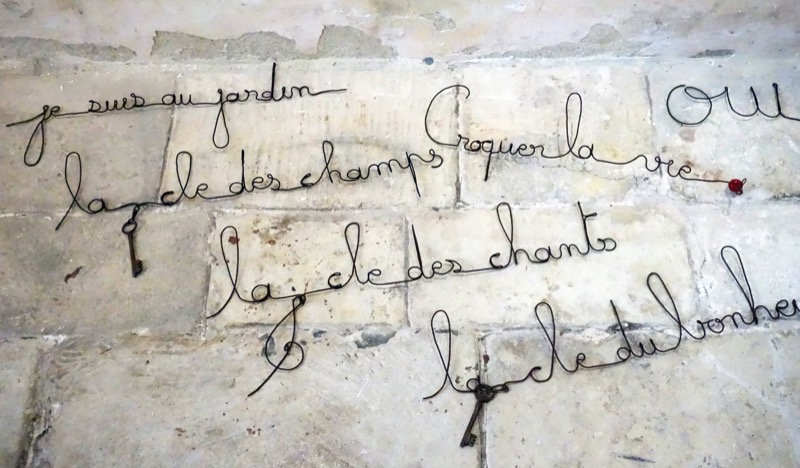 je suis au jardin
Croquer la vie
OUI
la cle des champs
la cle des chants
la cle du bonheu